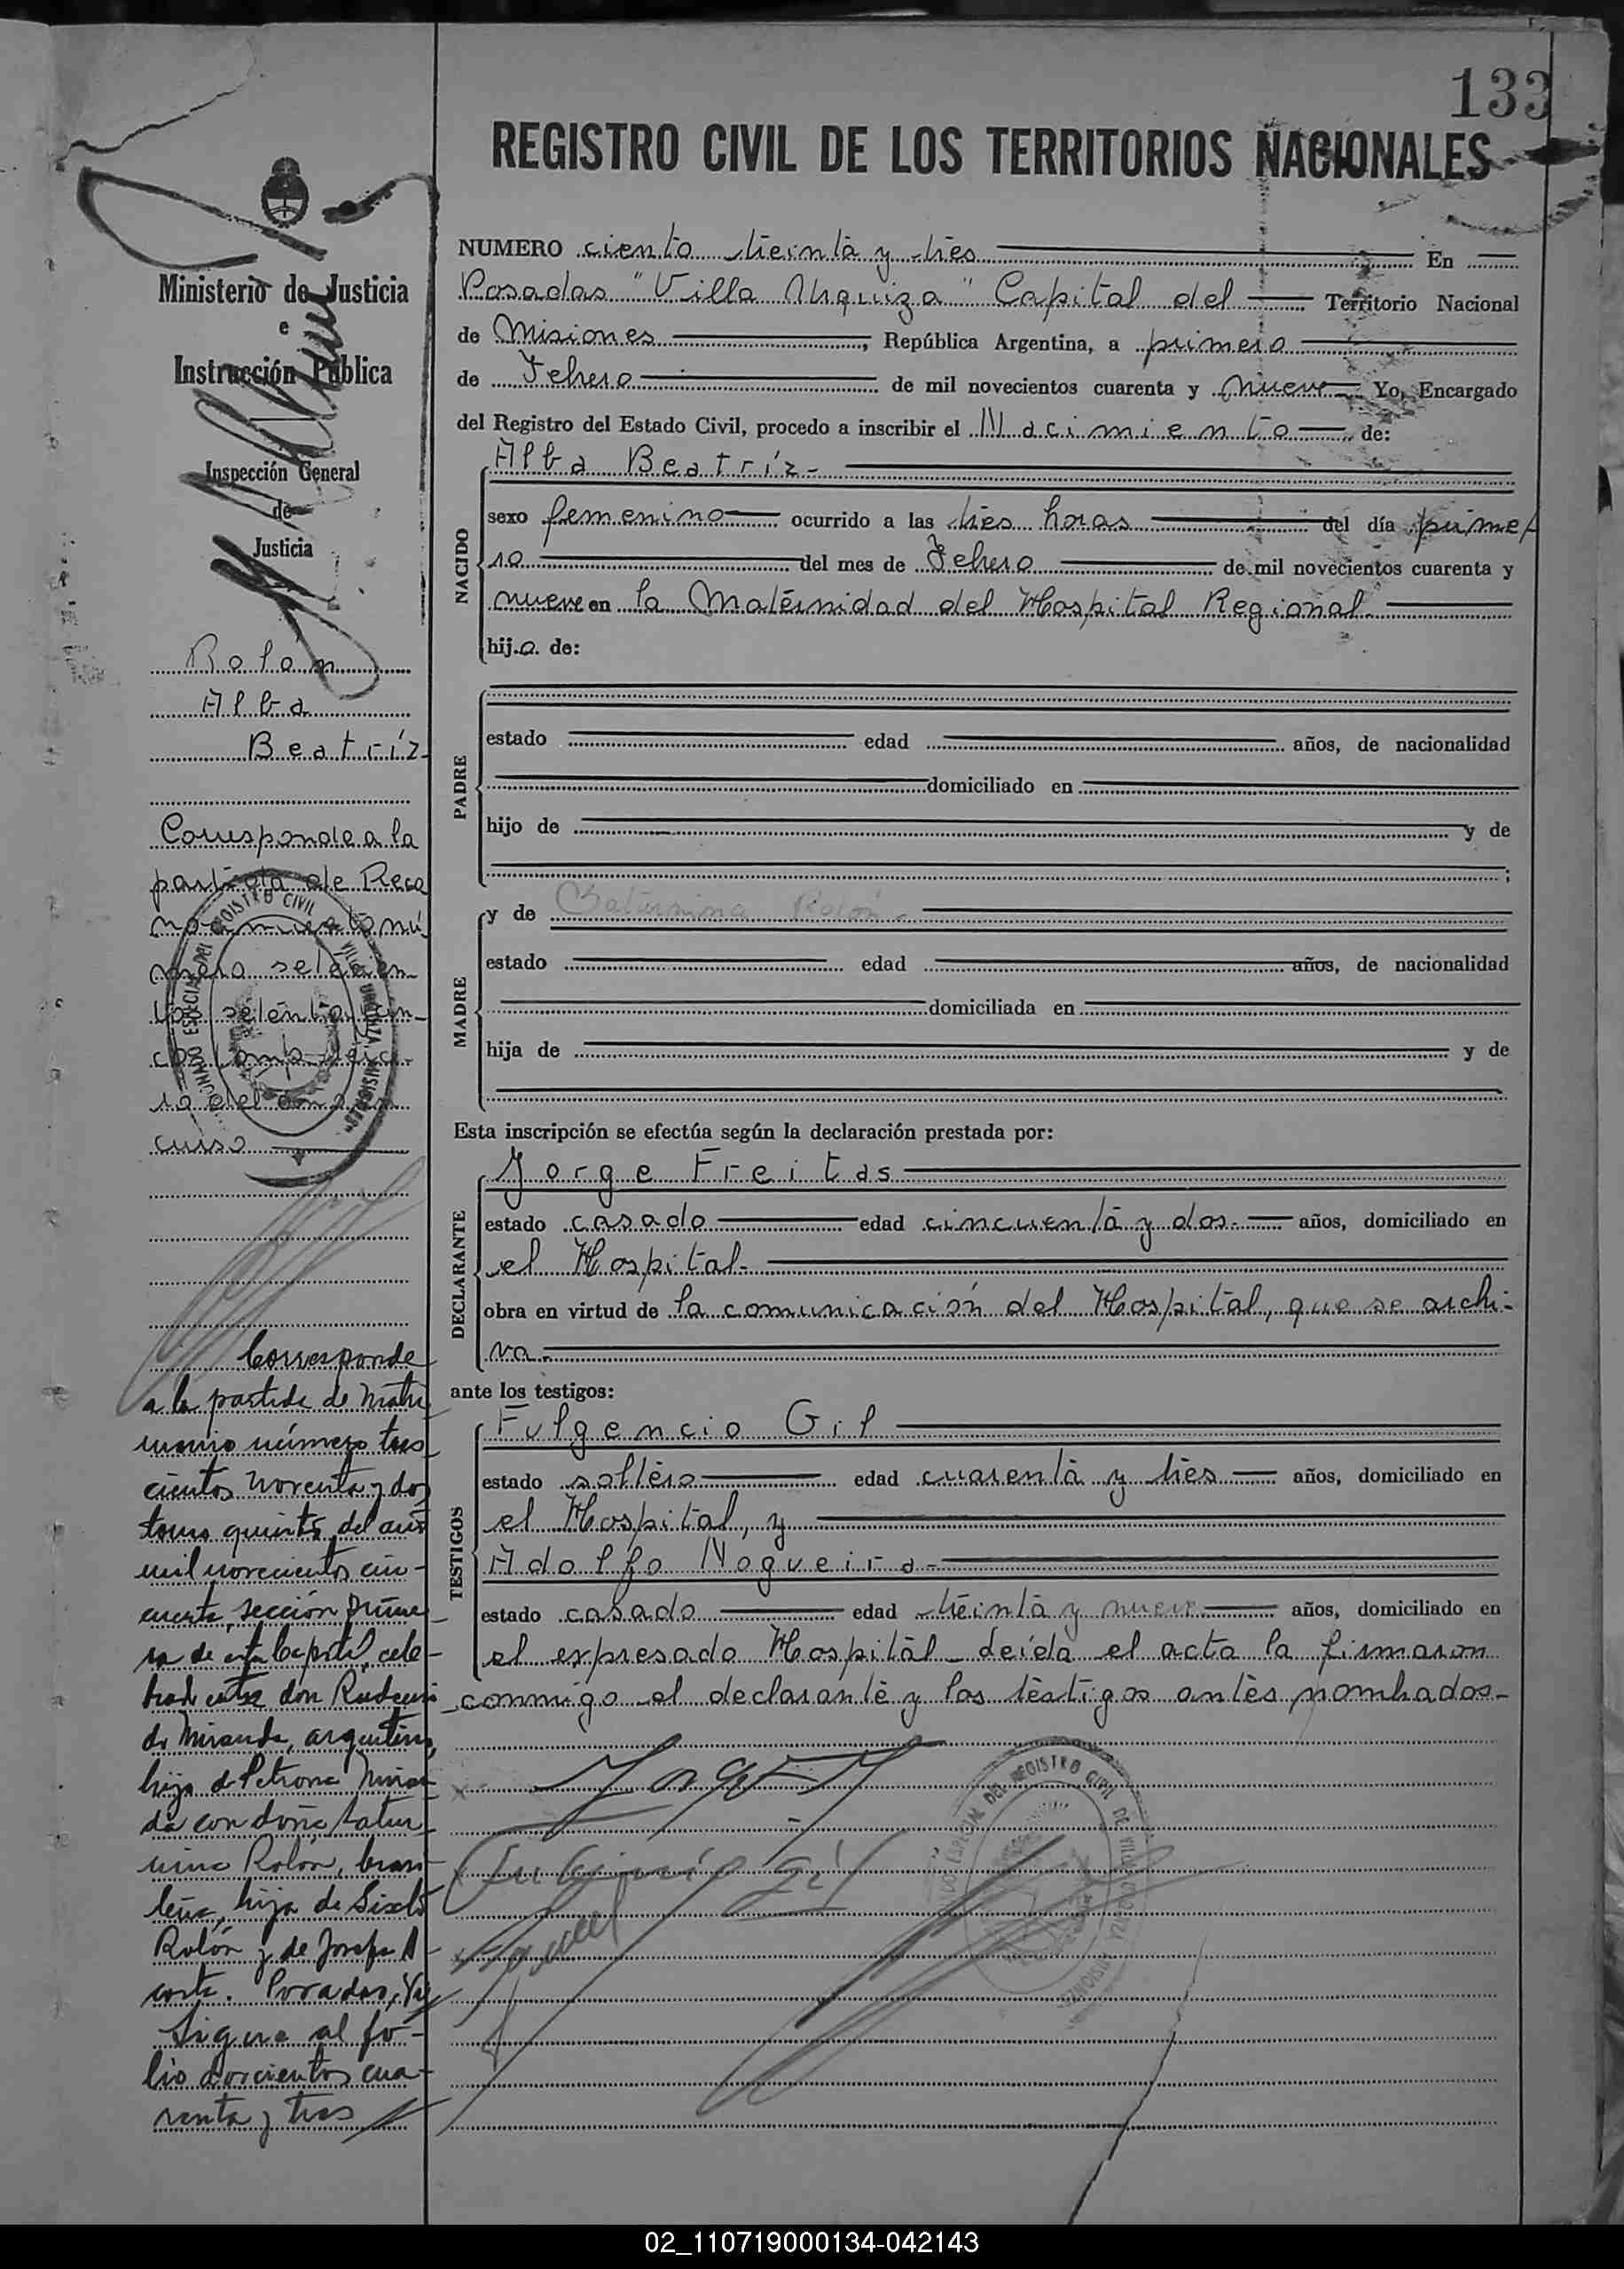 133
REGISTRO CIVIL DE LOS TERRITORIOS NACIONALES
Ministerio de Justicia
e
Instrucción Pública
Inspección General
de
Justicia
Rolón
Alba
Beatríz-
Corresponde a la
partida de Reco
nocimiento nú-
mero setecien-
tos setenta cin-
co
del
curso
Corresponde
a la partida de Matri
monio número tres
cientos noventa y dos
tomo quinto del año
mil novecientos cin-
cuenta, sección prime
ra de esta Capital, cele-
brado entre don Rudecin
do Miranda, argentino,
hijo de Petrona Miran
da con doña Satur
nina Rolón, brasi
leña, hija de Sixto
Rolón y de Josefa A
costa. Posadas,
Sigue al fo-
lio doscientos cua-
renta y tres
NUMERO ciento treinta y tres En
Posadas "Villa Urquiza" Capital del Territorio Nacional
de Misiones, República Argentina, a primero
de Febrero de mil novecientos cuarenta y nueve Yo, Encargado
del Registro del Estado Civil, procedo a inscribir el Nacimiento de:
NACIDO
Alba Beatríz-
sexo femenino ocurrido a las tres horas del día prime
ro del mes de Febrero de mil novecientos cuarenta y
nueve en la Maternidad del Hospital Regional
hija de:
PADRE
estado edad años, de nacionalidad
domiciliado en
hijo de y de
;
MADRE
y de Saturnina Rolón-
estado edad años, de nacionalidad
domiciliada en
hija de y de
Esta inscripción se efectúa según la declaración prestada por:
DECLARANTE
Jorge Freitas
estado casado edad cincuenta y dos- años, domiciliado en
el Hospital-
obra en virtud de la comunicación del Hospital, que se archi-
va.
ante los testigos:
TESTIGOS
Fulgencio Gil
estado soltero edad cuarenta y tres años, domiciliado en
el Hospital, y
Adolfo Nogueira-
estado casado edad treinta y nueve años, domiciliado en
el expresado Hospital- Leída el acta la firmaron
conmigo el declarante y los testigos antes nombrados-
DEL REGISTRO CIVIL DE VILLA URQUIZA MISIONES
02_110719000134-042143